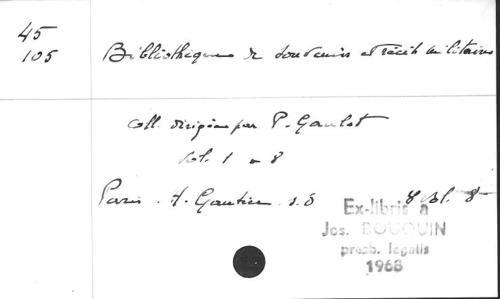 45
105
Bibliothèque de souvenirs et récits militaires
coll. dirigée par P. Gaulot
vol. 1 à 8
Paris. H. Gautier s.d 8 vol. 8°
Ex-libris a
Jos. BOUQUIN
presb. legatis
1968